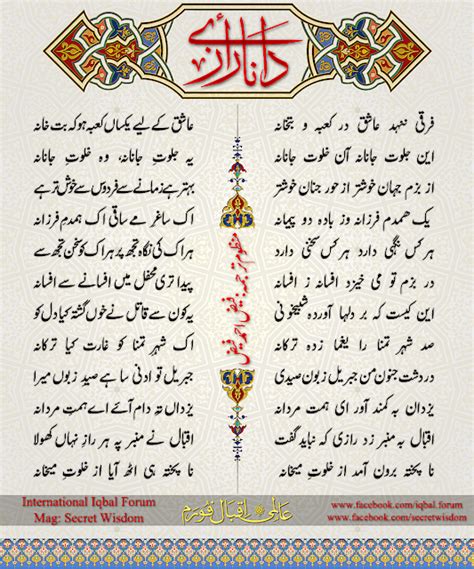 دانائے راز
فرقی ننہد عاشق در کعبہ و بتخانہ
این جلوت جانانہ آن خلوت جانانہ
از بزم جہان خوشتر از حور جنان خوشتر
یک ہمدم فرزانہ وز بادہ دو پیمانہ
ہر کس نگہی دارد ہر کس سخنی دارد
در بزم تو می خیزد افسانہ ز افسانہ
این کیست کہ بر دلہا آوردہ شبیخونی
صد شہر تمنا را یغما زدہ ترکانہ
در دشت جنون من جبریل زبون صیدی
یزدان بہ کمند آور ای ہمت مردانہ
اقبال بہ منبر زد رازی کہ نباید گفت
نا پختہ برون آمد از خلوت میخانہ
منظوم ترجمہ: فیض احمد فیض
عاشق کے لیے یکساں کعبہ ہو کہ بت خانہ
یہ جلوتِ جانانہ، وہ خلوتِ جانانہ
بہتر ہے زمانے سے فردوس سے خوش تر ہے
اک ساغرِ مے ساقی اک ہمدمِ فرزانہ
ہر اک کی نگاہ تجھ پر ہر اک کو سخن تجھ سے
پیدا تری محفل میں افسانے سے افسانہ
یہ کون سا قاتل نے خوں گشتہ کیا دل کو
اک شہرِ تمنا کو غارت کیا ترکانہ
جبریل تو ادنی سا ہے صیدِ زبوں میرا
یزداں تہِ دام آئے اے ہمتِ مردانہ
اقبال نے منبر پہ ہر رازِ نہاں کھولا
نا پختہ ہی اٹھ آیا از خلوتِ میخانہ
International Iqbal Forum
Mag: Secret Wisdom
عالمی اقبال فورم
www.facebook.com/iqbal.forum
www.facebook.com/secretwisdom